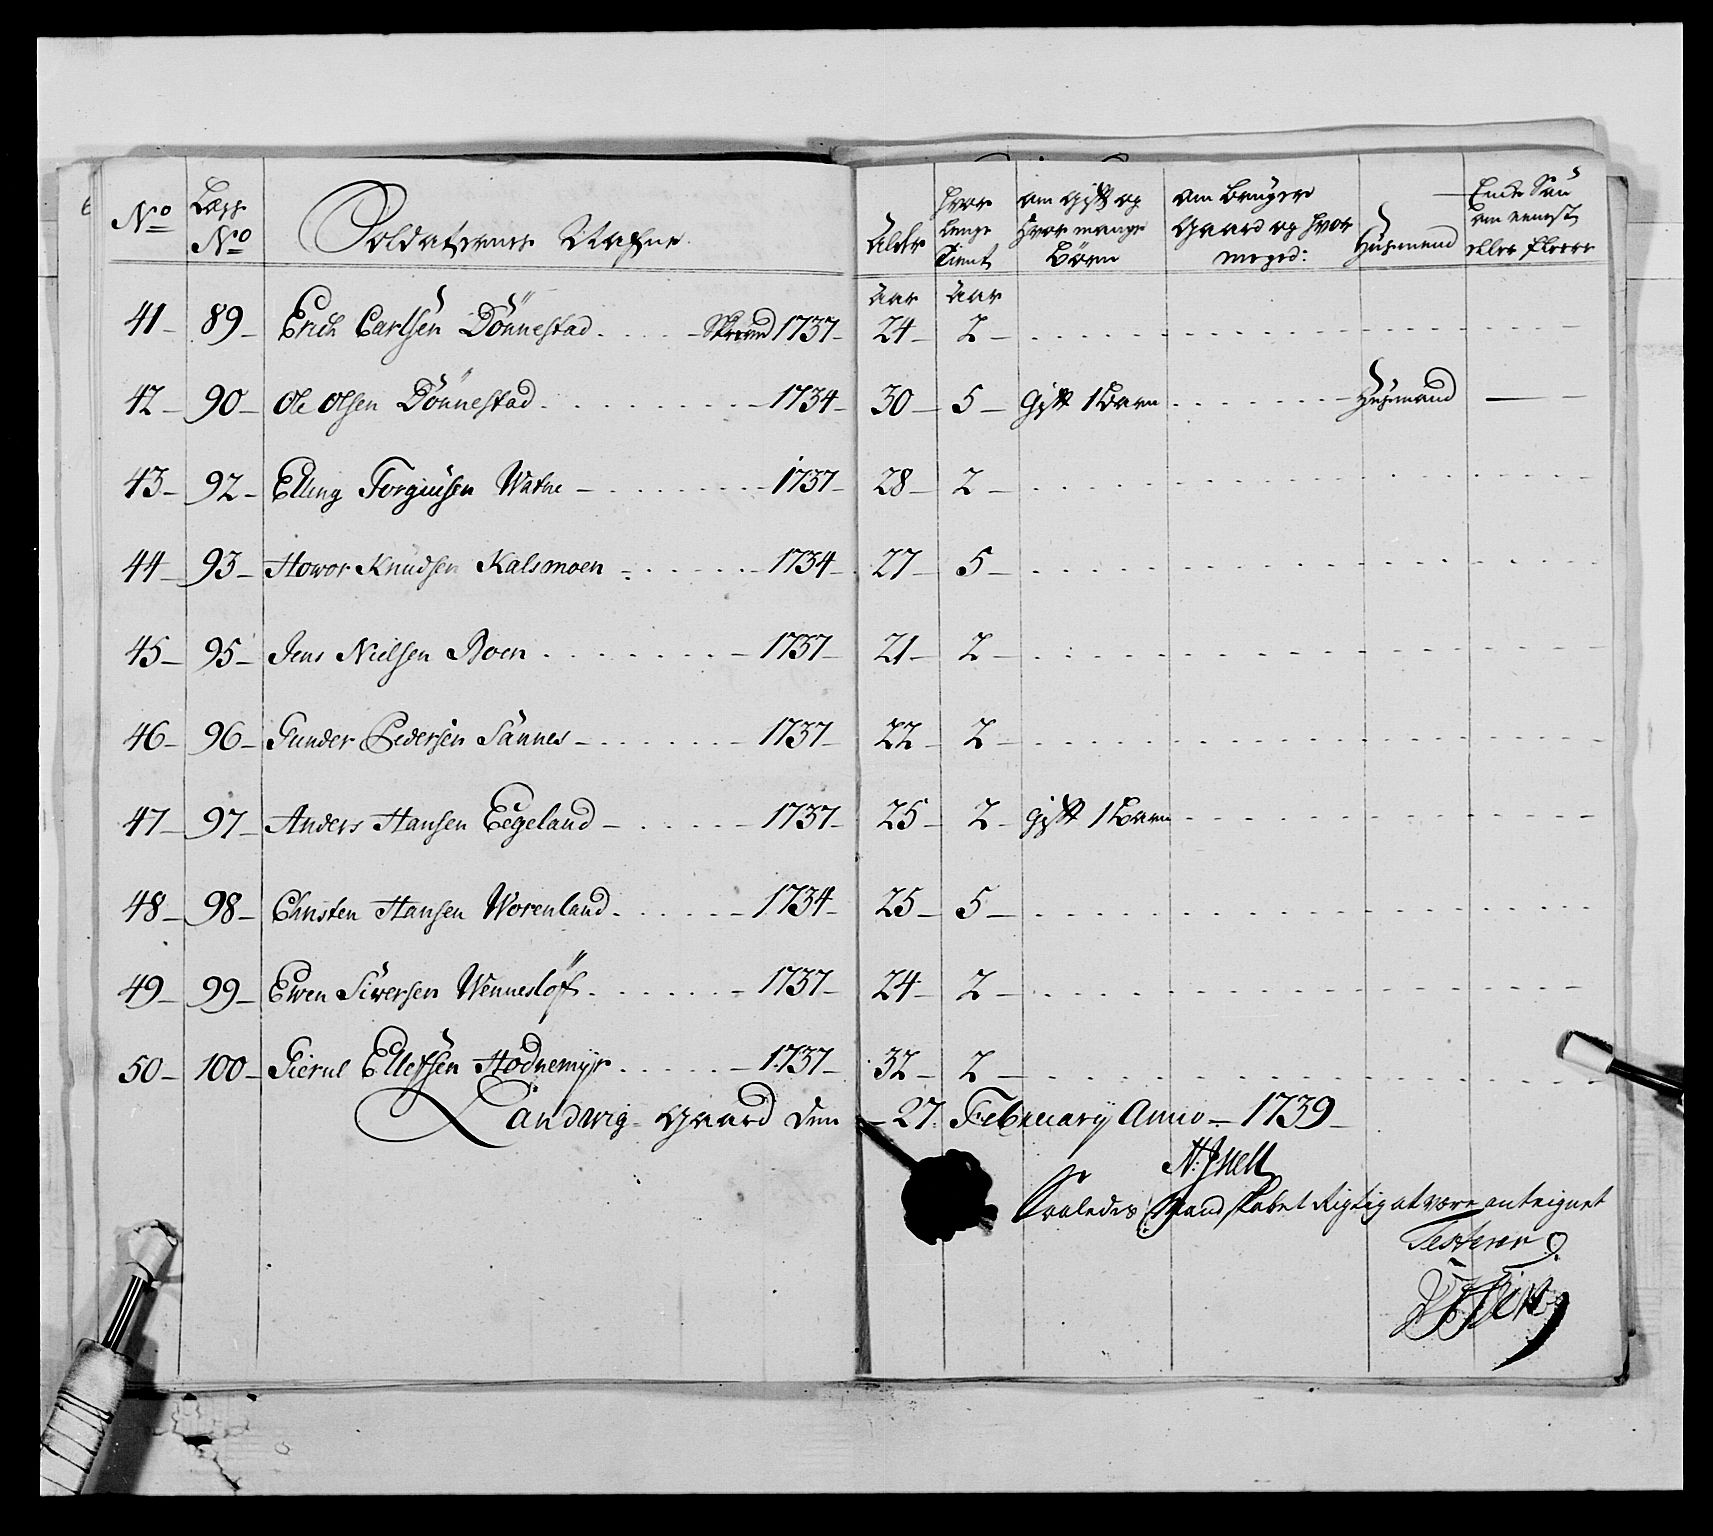 No Lægs No Soldaternes Nafne. Alder hvor lenge Tient om gift og hvor mange Börn om bruger Gaard og hvor meged: Huusmend Eene Sön om eeneste eller fleere
Aar Aar
41 - 89 - Erich Carlsen Dönnestad . . . . - 1737 - 24 - 2 -
42 - 90 - Ole Olsen Dönnestad . . . . - 1734 - 30 - 5 - gift 1 Barn - Huusmand -
43 - 92 - Elling Torgiusen Watne - . . . . - 1737 - 28 - 2 -
44 - 93 - Howor Knudsen Kalsmoen - . . . . - 1734 - 27 - 5 -
45 - 95 - Jens Nielsen Boen . . . . - 1737 - 21 - 2 -
46 - 96 - Gunder Pedersen Sannes - . . . . - 1737 - 22 - 2 -
47 - 97 - Anders Hansen Eegeland - . . . . - 1737 - 25 - 2 - gift 1 Barn
48 - 98 - Christen Hansen Worenland . . . . - 1734 - 25 - 5 -
49 - 99 - Ewen Siwersen Wennesløf . . . . - 1737 - 24 - 2 -
50 - 100 - Gierul Ellefsen Hodnemyr . . . . - 1737 - 32 - 2 -
Landwig - Gaard den - 27. February Anno - 1739 -
Saaledes Mandskabet Rigtig at være anteignet
Testerer